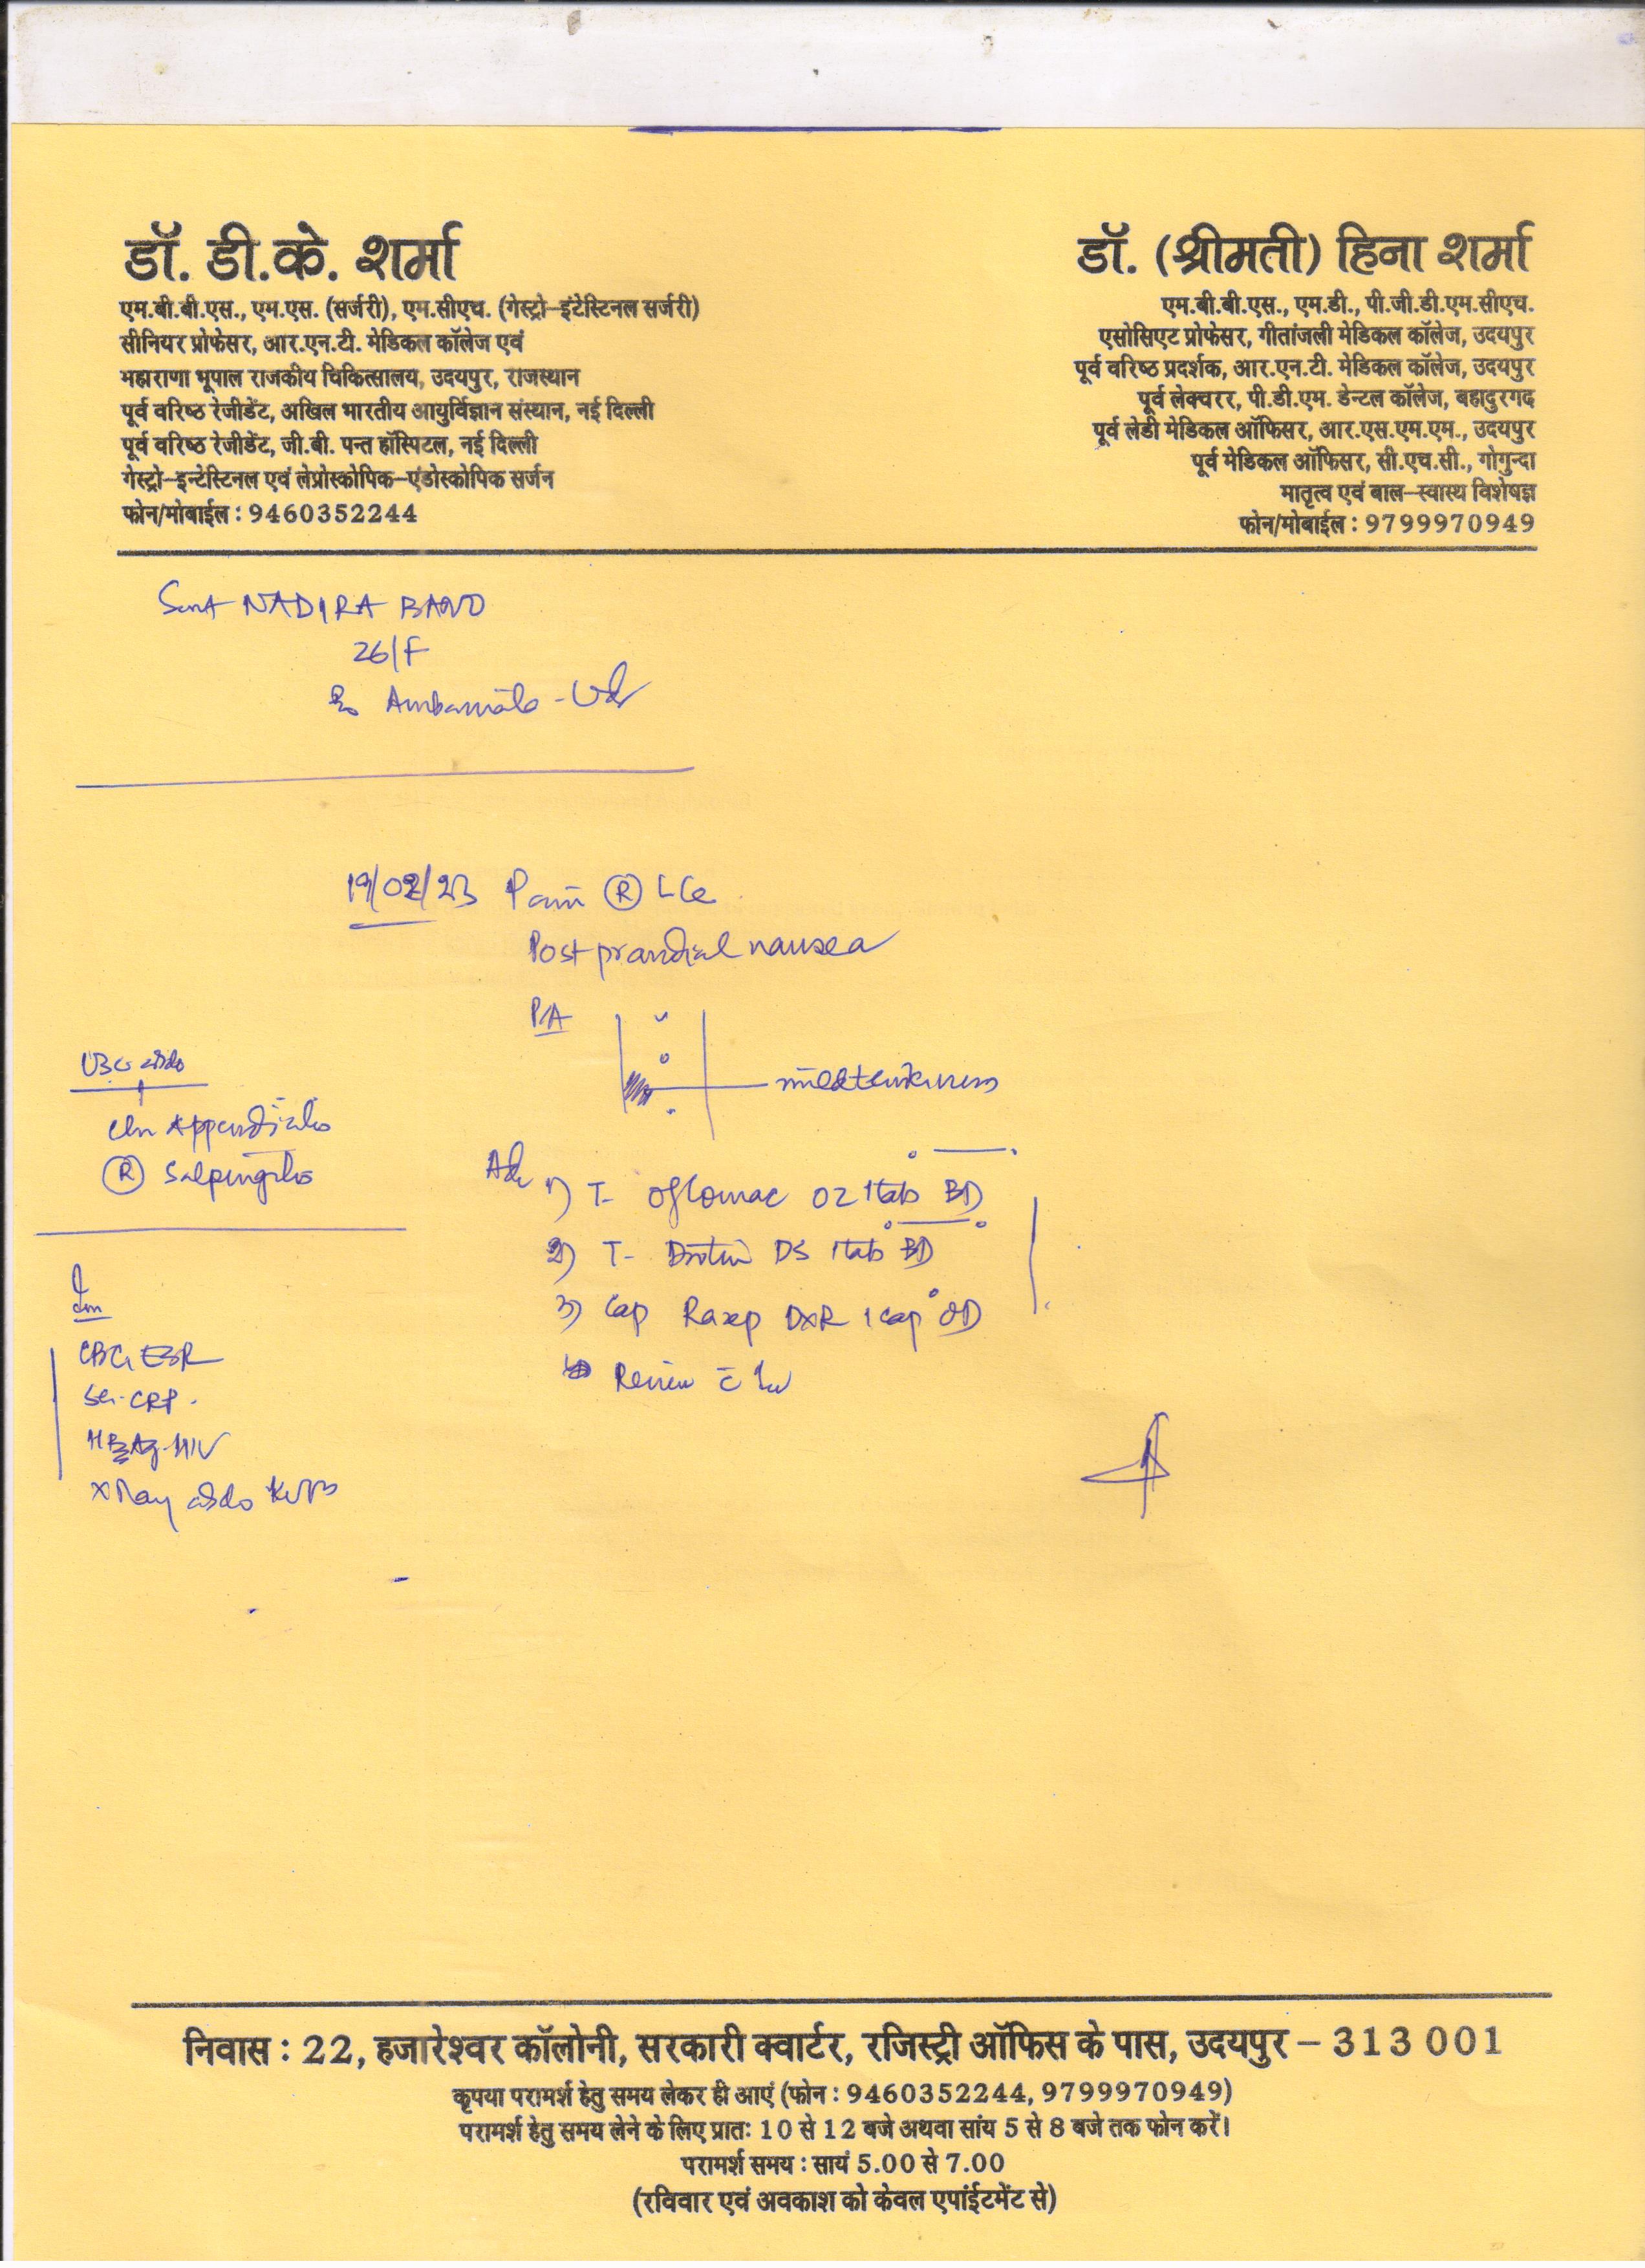 डॉ. डी.के. शर्मा
एम.बी.बी.एस., एम.एस. (सर्जरी), एम.सीएच. (गेस्ट्रो-इंटेस्टिनल सर्जरी)
सीनियर प्रोफेसर, आर.एन.टी. मेडिकल कॉलेज एवं
महाराणा भूपाल राजकीय चिकित्सालय, उदयपुर, राजस्थान
पूर्व वरिष्ठ रेजीडेंट, अखिल भारतीय आयुर्विज्ञान संस्थान, नई दिल्ली
पूर्व वरिष्ठ रेजीडेंट, जी.बी. पन्त हॉस्पिटल, नई दिल्ली
गेस्ट्रो-इन्टेस्टिनल एवं लेप्रोस्कोपिक-एंडोस्कोपिक सर्जन
फोन/मोबाईल : 9460352244
डॉ. (श्रीमती) हिना शर्मा
एम.बी.बी.एस., एम.डी., पी.जी.डी.एम.सीएच.
एसोसिएट प्रोफेसर, गीतांजली मेडिकल कॉलेज, उदयपुर
पूर्व वरिष्ठ प्रदर्शक, आर.एन.टी. मेडिकल कॉलेज, उदयपुर
पूर्व लेक्चरर, पी.डी.एम. डेन्टल कॉलेज, बहादुरगढ
पूर्व लेडी मेडिकल ऑफिसर, आर.एस.एम.एम., उदयपुर
पूर्व मेडिकल ऑफिसर, सी.एच.सी., गोगुन्दा
मातृत्व एवं बाल-स्वास्थ विशेषज्ञ
फोन/मोबाईल : 9799970949
Smt NADIRA BANO
26/F
Ambamata - Ud
19/02/23 Pain Ⓡ
Post prandial nausea
P/A
mild tenderness
USG abdo
Appendicitis
Ⓡ Salpingitis
Adv 1) T- Oflomac OZ 1tab BD
2) T- DS 1tab BD
3) Cap Raxep DXR 1 cap OD
Review c̄
CBC, ESR
Se. CRP.
HBsAg. HIV
X Ray abdo KUB
निवास : 22, हजारेश्वर कॉलोनी, सरकारी क्वार्टर, रजिस्ट्री ऑफिस के पास, उदयपुर - 313 001
कृपया परामर्श हेतु समय लेकर ही आएं (फोन : 9460352244, 9799970949)
परामर्श हेतु समय लेने के लिए प्रातः 10 से 12 बजे अथवा सांय 5 से 8 बजे तक फोन करें।
परामर्श समय : सायं 5.00 से 7.00
(रविवार एवं अवकाश को केवल एपांईटमेंट से)